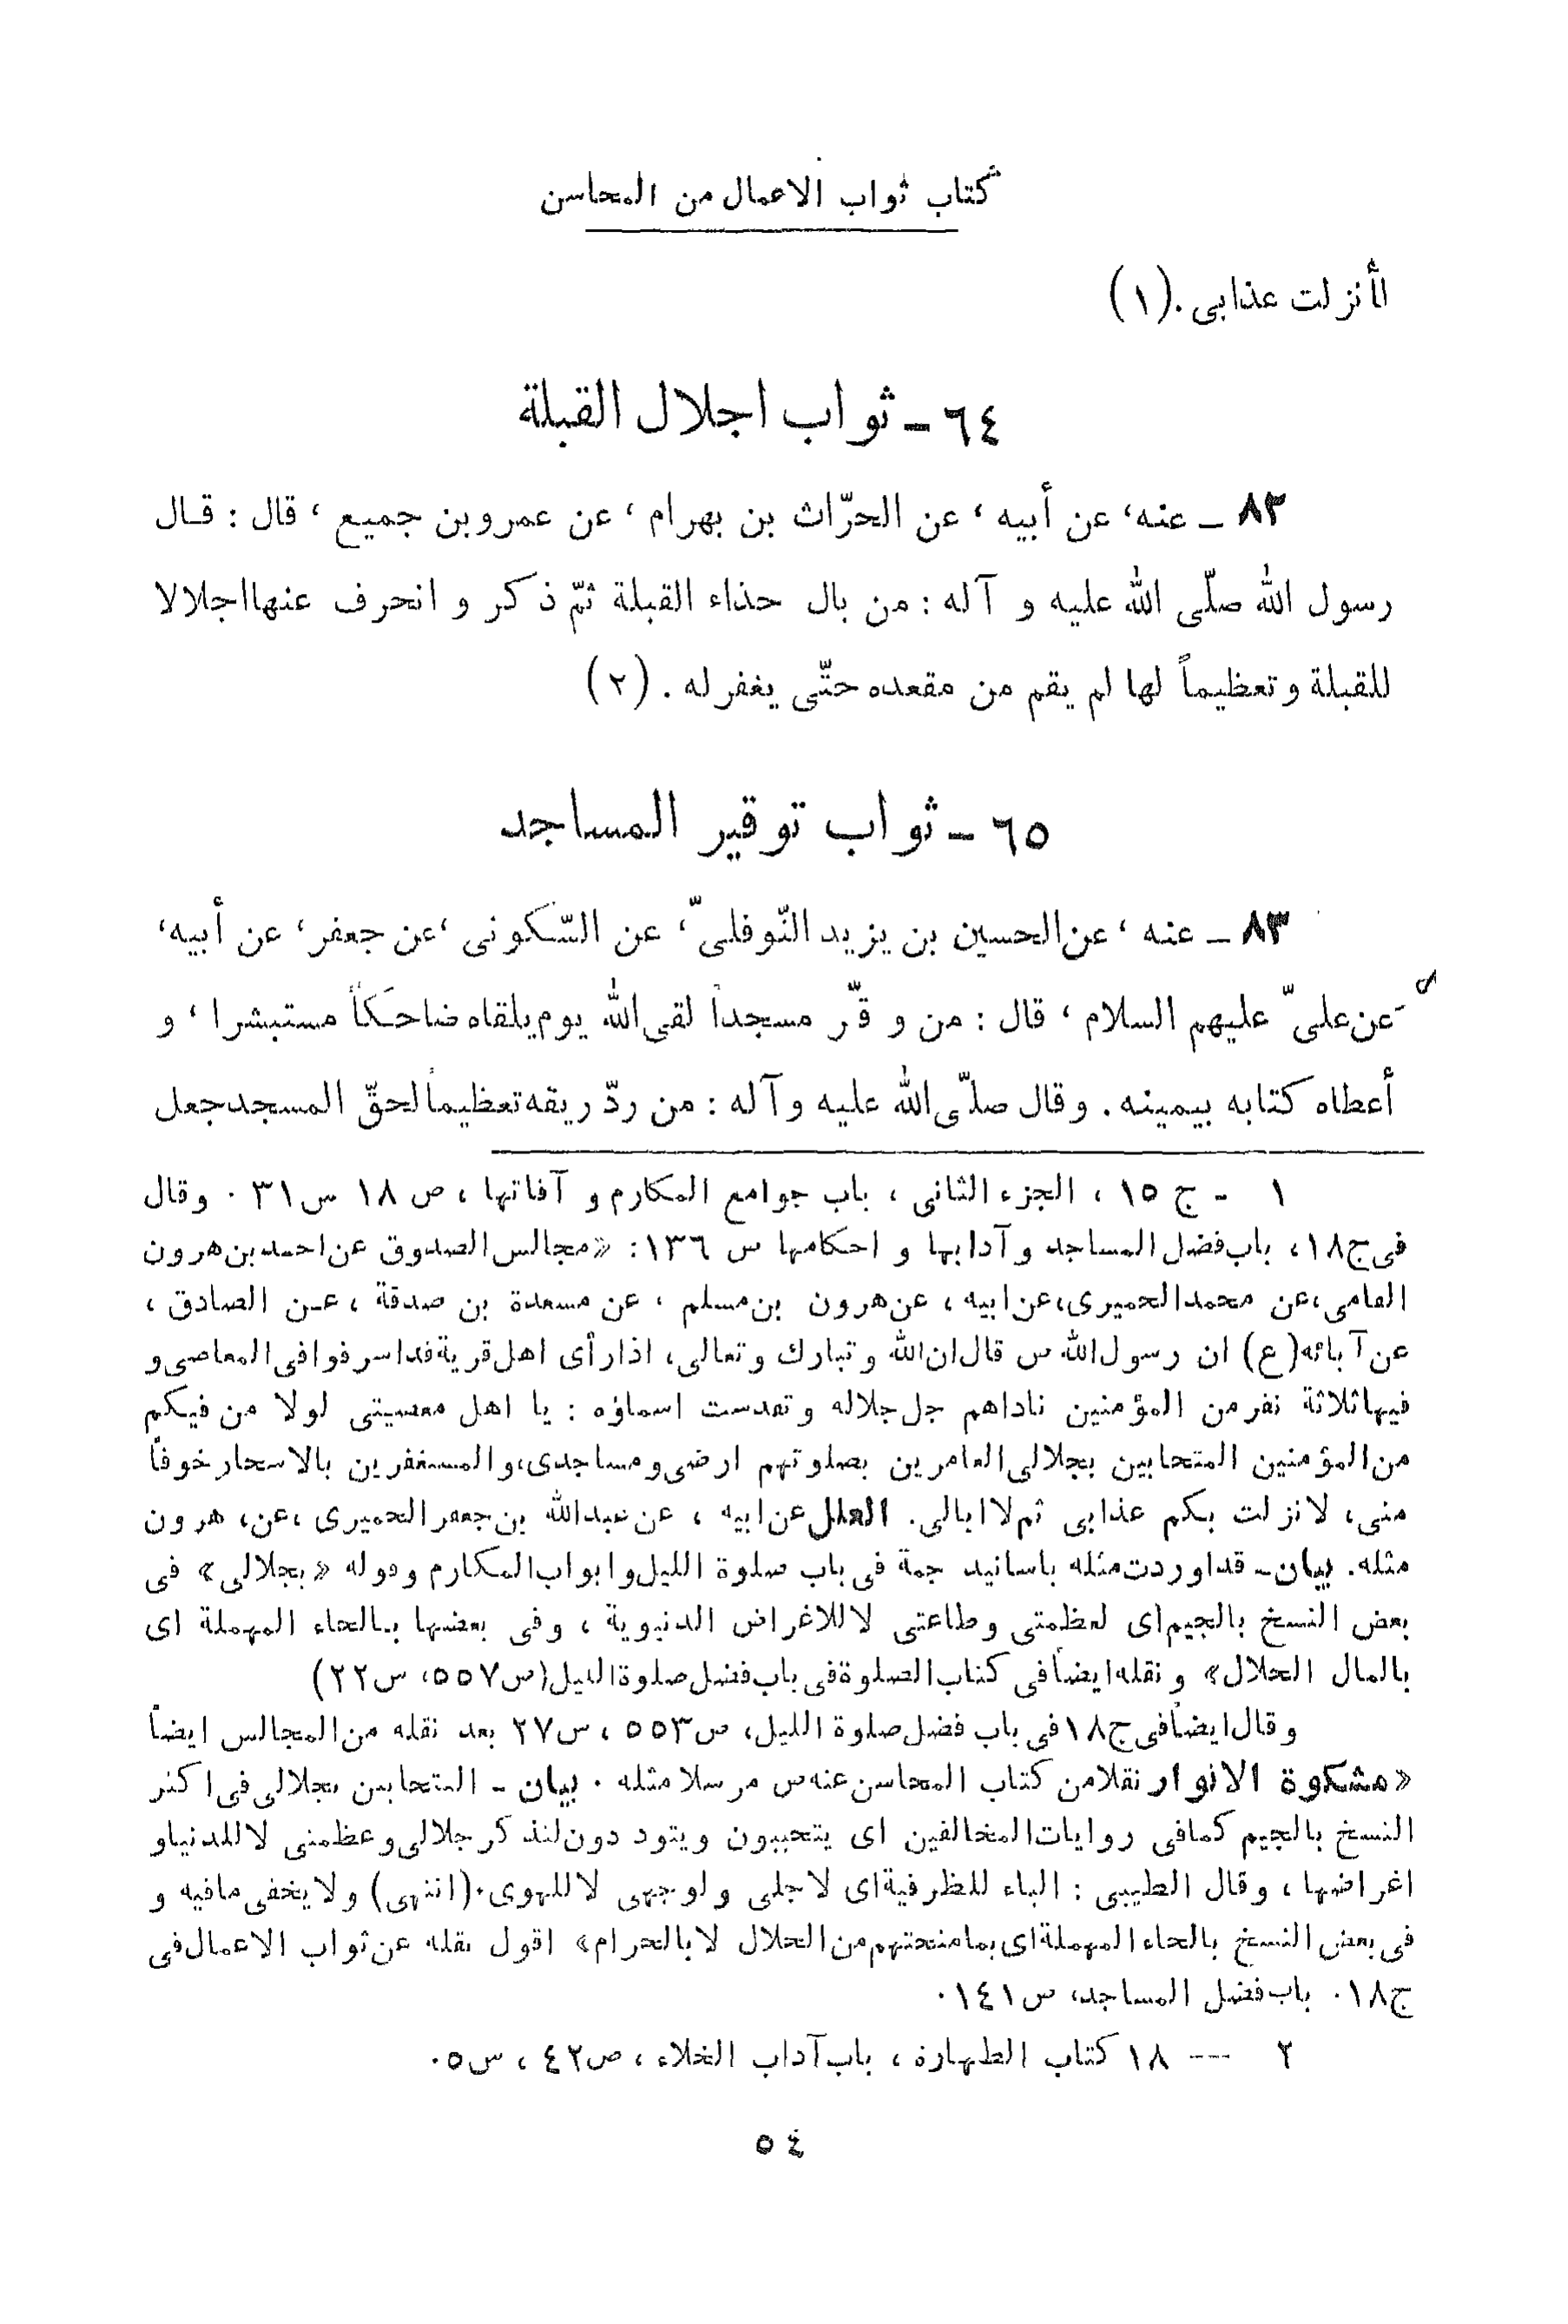 كتاب ثواب الاعمال من المحاسن
لأنزلت عذابى. (١)
٦٤ - ثواب اجلال القبلة
٨٢ - عنه، عن أبيه، عن الحرّاث بن بهرام، عن عمرو بن جميع، قال: قال
رسول الله صلّى الله عليه و آله: من بال حذاء القبلة ثمّ ذكر و انحرف عنها اجلالا
للقبلة و تعظيماً لها لم يقم من مقعده حتّى يغفر له. (٢)
٦٥ - ثواب توقير المساجد
٨٣ - عنه، عن الحسين بن يزيد النّوفلىّ، عن السّكونى، عن جعفر، عن أبيه،
عن علىّ عليهم السلام، قال: من وقّر مسجداً لقى الله يوم يلقاه ضاحكاً مستبشرا، و
أعطاه كتابه بيمينه. وقال صلّى الله عليه وآله: من ردّ ريقه تعظيماً لحقّ المسجد جعل
١ - ج ١٥، الجزء الثانى، باب جوامع المكارم و آفاتها، ص ١٨ س ٣١. وقال
فى ج ١٨، باب فضل المساجد و آدابها و احكامها س ١٣٦: «مجالس الصدوق عن احمد بن هرون
العامى، عن محمد الحميرى، عن ابيه، عن هرون بن مسلم، عن مسعدة بن صدقة، عن الصادق،
عن آبائه (ع) ان رسول الله ص قال ان الله و تبارك و تعالى، اذا رأى اهل قرية قد اسرفوا فى المعاصى و
فيها ثلاثة نفر من المؤمنين ناداهم جل جلاله و تقدست اسماؤه: يا اهل معصيتى لولا من فيكم
من المؤمنين المتحابين بجلالى العامرين بصلوتهم ارضى و مساجدى، و المستغفرين بالاسحار خوفاً
منى، لانزلت بكم عذابى ثم لا ابالى. العلل عن ابيه، عن عبدالله بن جعفر الحميرى، عن، هرون
مثله. بيان - قد اوردت مثله باسانيد جمة فى باب صلوة الليل و ابواب المكارم و قوله «بجلالى» فى
بعض النسخ بالجيم اى لعظمتى و طاعتى لا للاغراض الدنيوية، و فى بعضها بالحاء المهملة اى
بالمال الحلال» و نقله ايضاً فى كتاب الصلوة فى باب فضل صلوة الليل (ص ٥٥٧، س ٢٢)
و قال ايضاً فى ج ١٨ فى باب فضل صلوة الليل، ص ٥٥٣، س ٢٧ بعد نقله من المجالس ايضاً
«مشكوة الانوار نقلا من كتاب المحاسن عنه ص مرسلا مثله. بيان - المتحابين بجلالى فى اكثر
النسخ بالجيم كما فى روايات المخالفين اى يتحببون و يتوددون لتذكر جلالى و عظمتى لا للدنيا و
اغراضها، و قال الطيبى: الباء للظرفية اى لاجلى و لوجهى لا للهوى. (انتهى) و لا يخفى ما فيه و
فى بعض النسخ بالحاء المهملة اى بما منحتهم من الحلال لا بالحرام» اقول نقله عن ثواب الاعمال فى
ج ١٨. باب فضل المساجد، س ١٤١.
٢ --- ١٨ كتاب الطهارة، باب آداب الخلاء، ص ٤٢، س ٥.
٥٤